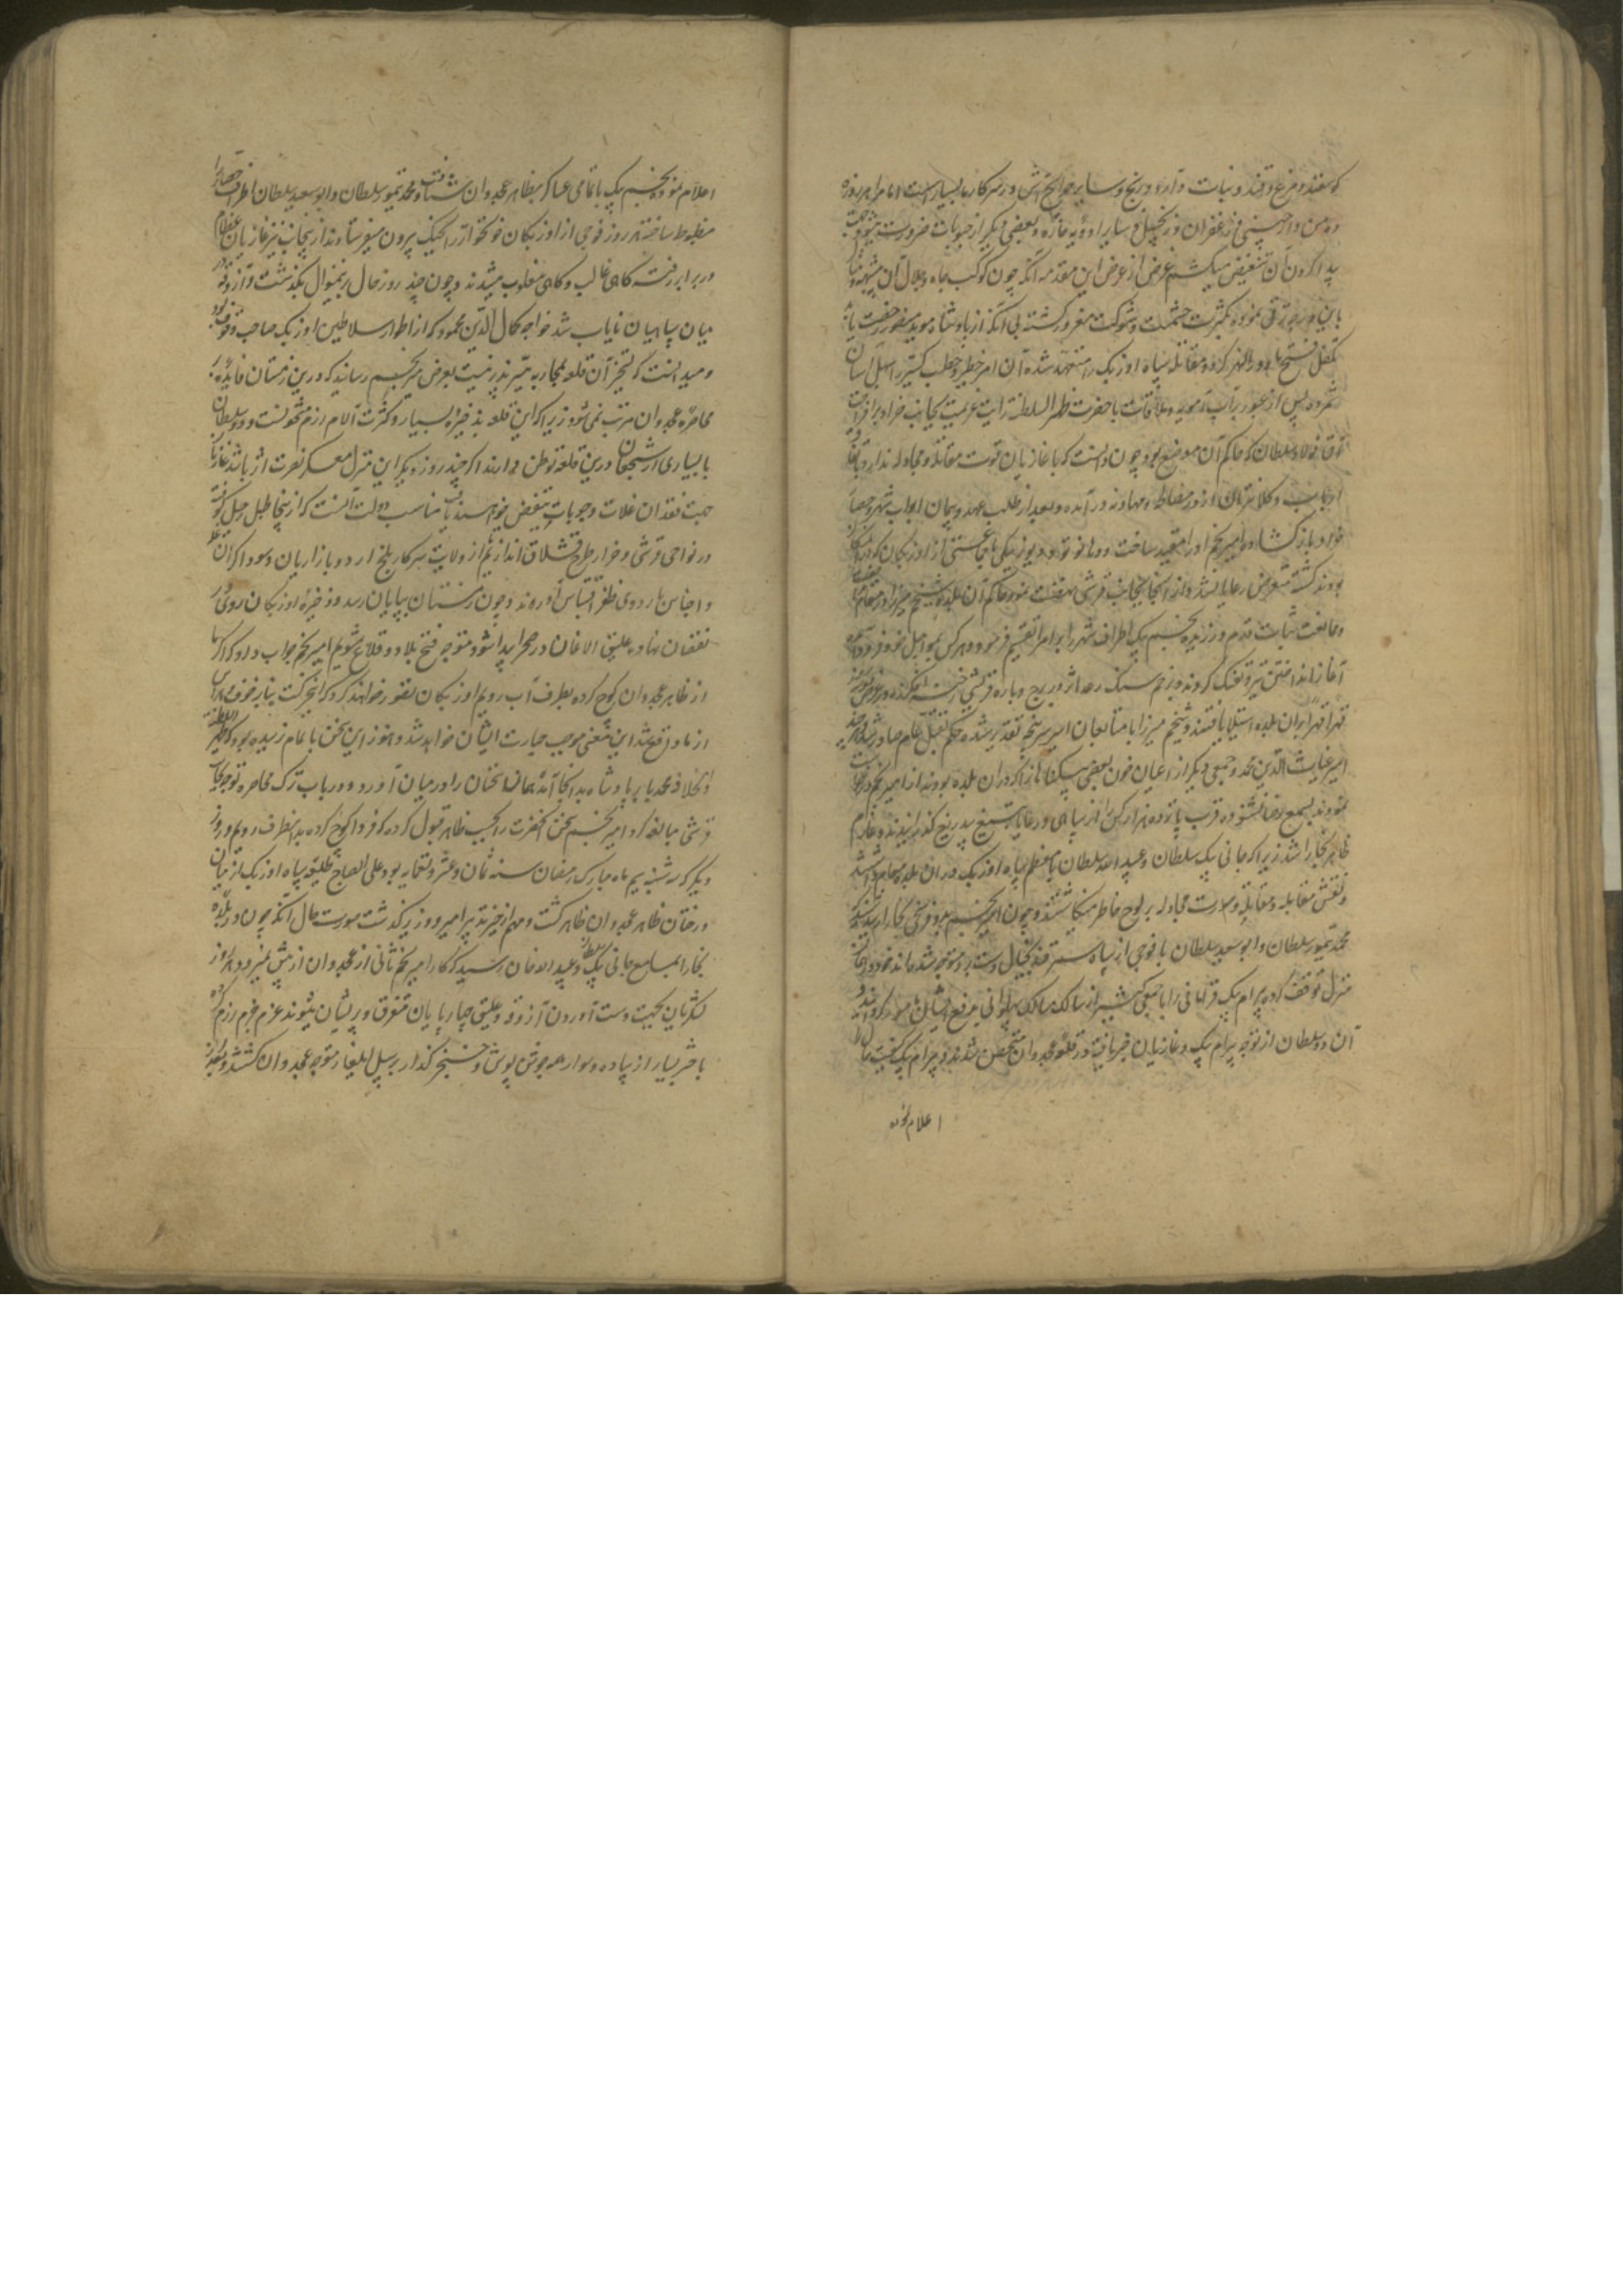 گوسفند و مرغ و قند و نبات و آرد و برنج و سایر حوایج آش در سرکار ما بسیار است اما هر روزه
ده من دارچینی و زعفران و زنجبیل و سایر ادویه حاره و بعضی دیگر از حبوبات ضرورت میشود و جهت
پیدا کردن آن تنغیض میکشم غرض از عرض این مقدمه آنکه چون کوکب جاه و جلال آن
باین درجه ترقی نموده بکثرت حشمت و شوکت مغرور گشته بی آنکه از پادشاه موید منصور رخصت یابد
متکفل فتح ماوراءالنهر گردد و مقاتله سپاه اوزبک را متعهد شده آن امر خطیر و خطب کبیر را سهل و آسان
شمرده پس از عبور بر آب آمویه و ملاقات با حضرت ظهیر السلطنة رایت عزیمت بجانب خزار برافراخت
آق فولاد سلطان که حاکم آن موضع بود چون دانست که با غازیان قوت مقاتله و مجادله ندارد باتفاق
اجانب و کلانتران از در مصالحه و مهادنه در آمده و بعد از طلب عهد و پیمان ابواب شهر و حصار
خزار باز گشاد و امیر نجم او را مقید ساخت و با جمعی از اوزبکان که در آنجا
بودند کشته متعرض رعایا نشد و از آنجا بجانب قرشی نهضت نمود حاکم آن بلده شیخم میرزا در مقام
و ممانعت ثبات قدم ورزیده نجم بیک اطراف شهر را بر امرا تقسیم فرمود و هر کس بمورچل خود فرود آمده
آغاز انداختن تیر و تفنگ کردند و بزخم سنگ رعد اثر در برج و باره قرشی رخنه افکنده در عرض
قهرا قهرا بر آن بلده استیلا یافتند و شیخم میرزا با متابعان اسیر سرپنجه تقدیر شده حکم بقتل عام صادر شد و هر چند
امیر غیاث الدین محمد و جمعی دیگر از اعیان خون بعضی بیگناهان را که در آن بلده بودند از امیر نجم درخواست
نمودند بسمع رضا نشنوده قرب پانزده هزار کس را از سپاهی و رعایا بتیغ بیدریغ گذرانیدند و عازم
ظاهر بخارا شد زیرا که جانی بیک سلطان و عبید الله سلطان با معظم سپاه اوزبک در آن بلده مقام داشتند
و نقش مقابله و مقاتله و صورت مجادله بر لوح خاطر مینگاشتند و چون امیر نجم بدو فرسخی بخارا رسید
محمد تیمور سلطان و ابو سعید سلطان با فوجی از سپاه سمرقند بخیال دستبرد متوجه شده اند
منزل توقف کرده بیرام بیک قرامانی را با جمعی کثیر از سالک مسالک پهلوانی بدفع ایشان مامور گردانید
آن دو سلطان از توجه بیرام بیک و غازیان خبر یافته در قلعه غجدوان متحصن شدند و بیرام بیک کیفیت حال را
اعلام نموده
اعلام نمود نجم بیک با تمامی عساکر بظاهر غجدوان شتافت و محمد تیمور سلطان و ابو سعید سلطان اطراف حصار را
مضبوط ساخته هر روز فوجی از اوزبکان خونخوار را بجنگ بیرون میفرستادند از ینجانب نیز غازیان عظام
در برابر رفته گاهی غالب و گاهی مغلوب میشدند و چون چند روز حال برینمنوال بگذشت و آزوقه
میان سپاهیان نایاب شد خواجه کمال الدین محمود که از اطوار سلاطین اوزبک صاحب وقوف بود
و میدانست که تسخیر آن قلعه بمحاربه میسر پذیر نیست بعرض میر نجم رسانید که درین زمستان فایده بر
محاصره غجدوان مترتب نمی شود زیرا که این قلعه بذخیره بسیار و کثرت آلات رزم مشحونست و دو سلطان
با بسیاری از شجعان درین قلعه توطن دارند اگر چند روز دیگر این منزل معسکر نصرت اثر باشد غازیان
جهت فقدان غلات و حبوبات متنغض خواهند یافت مناسب دولت آنست که از ینجا طبل رحیل کوفته
در نواحی قرشی و خزار طرح قشلاق اندازیم تا از ولایت سرکار بلخ اردو بازاریان و سوداگران غله
و اجناس باردوی ظفر اقتباس آورند و چون زمستان بپایان رسد و ذخیره اوزبکان روی در
نقصان نهاده علیق الاغان در صحرا پیدا شود متوجه فتح بلاد و قلاع شویم امیر نجم جواب داد که اگر ما
از ظاهر غجدوان کوچ کرده بطرف آب رویم اوزبکان تصور خواهند کرد که این حرکت بنابر خوف و هراس
از ما واقع شد این معنی موجب جسارت ایشان خواهد شد و هنوز این سخن باتمام نرسیده بود که ظهیر السلطنة
والخلافة محمد بابر پادشاه بدانجا آمد همان سخنان را در میان آورد و در باب ترک محاصره و توجه بجانب
قرشی مبالغه کرد امیر نجم سخن آنحضرت را بحسب ظاهر قبول کرده که فردا کوچ کرده بدانطرف رویم و روز
دیگر که سه شنبه سیم ماه مبارک رمضان سنه ثمان و عشر و تسعمایه بود علی الصباح طلیعه سپاه اوزبک از میان
درختان ظاهر غجدوان ظاهر گشت و مهم از حیز تدبیر امیر و وزیر گذشت صورت حال آنکه چون در بلده
بخارا بمسامع جانی بیک سلطان و عبید الله خان رسید که کار امیر نجم ثانی از غجدوان از پیش نمیرود و هر روز
لشکریان بجهت بدست آوردن آزوقه و علیق چارپایان متفرق و پریشان میشوند عزم جزم رزم کرده
با حشر بسیار از پیاده و سوار همه جوشن پوش و خنجر گذار بر سبیل ایلغار متوجه غجدوان گشتند و بعد از